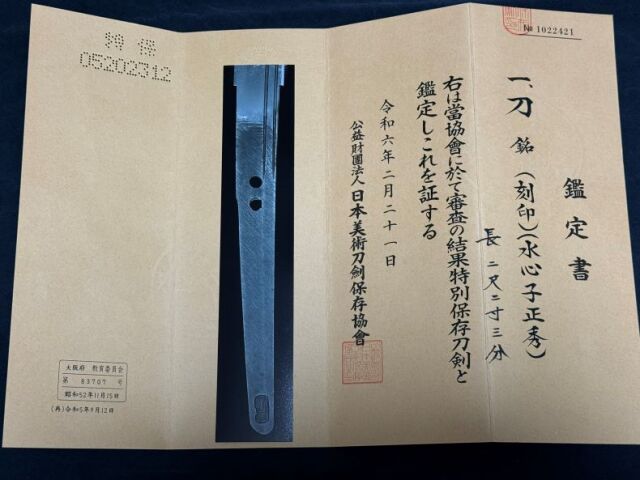 № 1022421
鑑定書
一、刀 銘 (刻印)(水心子正秀)
長 二尺二寸三分
右は當協會に於て審査の結果特別保存刀剣と
鑑定しこれを証する
令和六年二月二十一日
公益財團法人 日本美術刀劍保存協會
特保
05202312
大阪府 教育委員会
第 83707 号
昭和52年11月15日
(再)令和5年9月12日